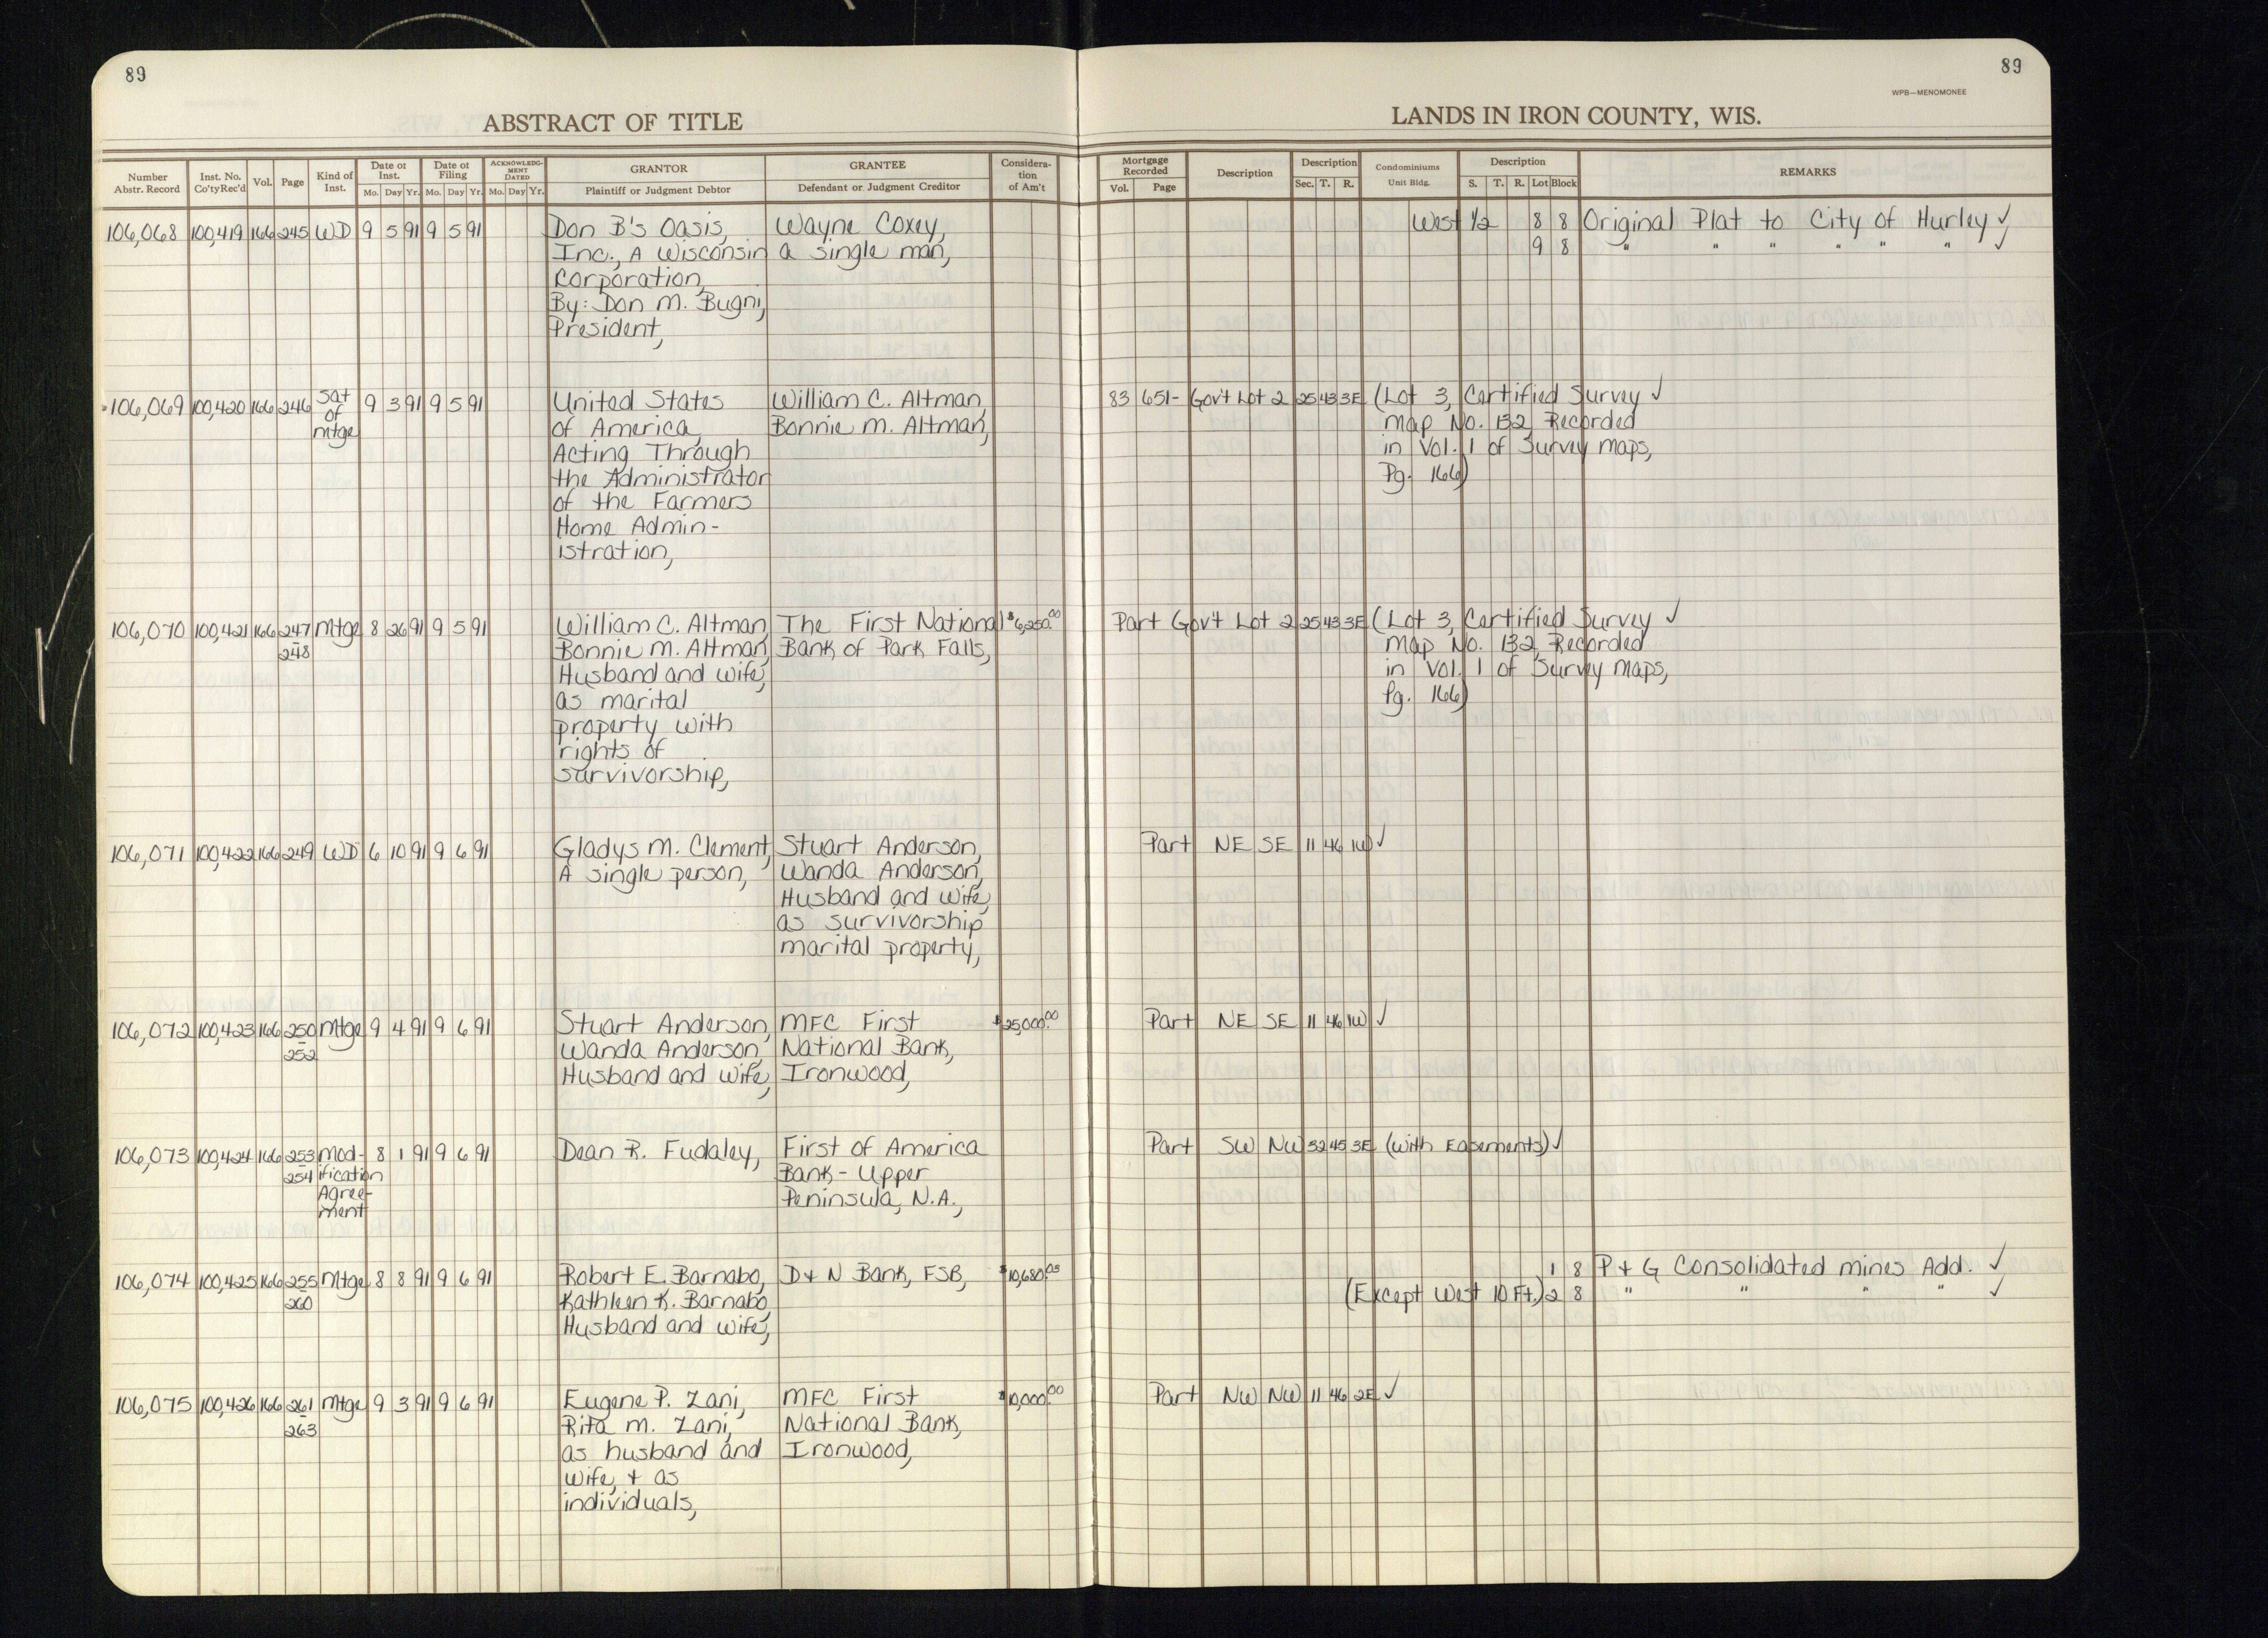 89
89
WPB—MENOMONEE
ABSTRACT OF TITLE
LANDS IN IRON COUNTY, WIS.
Number Abstr. Record | Inst. No. Co'tyRec'd | Vol. | Page | Kind of Inst. | Date of Inst. Mo. Day Yr. | Date of Filing Mo. Day Yr. | ACKNOWLEDGMENT DATED Mo. Day Yr. | GRANTOR Plaintiff or Judgment Debtor | GRANTEE Defendant or Judgment Creditor | Consideration of Am't | Mortgage Recorded Vol. Page | Description | Description Sec. T. R. | Condominiums Unit Bldg. | Description S. T. R. Lot Block | REMARKS
106,068 100,419 166 245 WD 9 5 91 9 5 91 Don B's Oasis, Wayne Coxey, West 1/2 8 8 Original Plat to City of Hurley ✓
Inc., A Wisconsin a single man, 9 8 " " " " " " ✓
Corporation,
By: Don M. Bugni,
President,
106,069 100,420 166 246 Sat 9 3 91 9 5 91 United States William C. Altman, 83 651- Gov't Lot 2 25 43 3E (Lot 3, Certified Survey ✓
of of America, Bonnie M. Altman, Map No. 132, Recorded
mtge Acting Through in Vol. 1 of Survey Maps,
the Administrator Pg. 166)
of the Farmers
Home Admin-
istration,
106,070 100,421 166 247 Mtge 8 26 91 9 5 91 William C. Altman, The First National $6,250.00 Part Gov't Lot 2 25 43 3E (Lot 3, Certified Survey ✓
- 248 Bonnie M. Altman, Bank of Park Falls, Map No. 132, Recorded
Husband and wife, in Vol. 1 of Survey Maps,
as marital Pg. 166)
property with
rights of
survivorship,
106,071 100,422 166 249 WD 6 10 91 9 6 91 Gladys M. Clement, Stuart Anderson, Part NE SE 11 46 1W ✓
A single person, Wanda Anderson,
Husband and wife,
as survivorship
marital property,
106,072 100,423 166 250 Mtge 9 4 91 9 6 91 Stuart Anderson, MFC First $25,000.00 Part NE SE 11 46 1W ✓
- 252 Wanda Anderson, National Bank,
Husband and wife, Ironwood,
106,073 100,424 166 253 Mod- 8 1 91 9 6 91 Dean R. Fudaley, First of America Part SW NW 32 45 3E (with Easements) ✓
- 254 ification Bank - Upper
Agree- Peninsula, N.A.,
ment
106,074 100,425 166 255 Mtge 8 8 91 9 6 91 Robert E. Barnabo, D + N Bank, FSB, $10,680.03 1 8 P + G Consolidated Mines Add. ✓
- 260 Kathleen K. Barnabo, (Except West 10 Ft.) 2 8 " " " " ✓
Husband and wife,
106,075 100,426 166 261 Mtge 9 3 91 9 6 91 Eugene P. Zani, MFC First $10,000.00 Part NW NW 11 46 2E ✓
- 263 Rita M. Zani, National Bank,
as husband and Ironwood,
wife, + as
individuals,